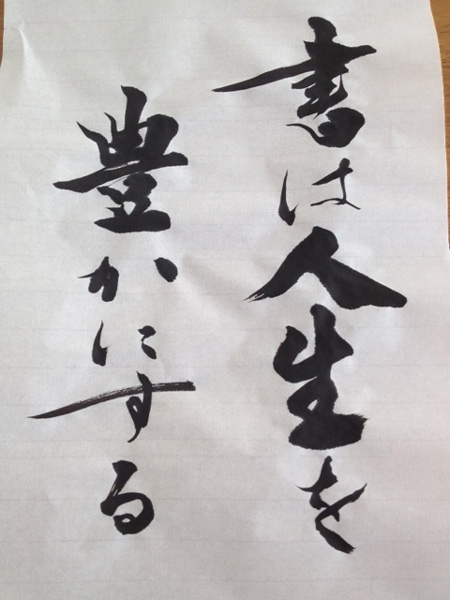 書は人生を
豊かにする